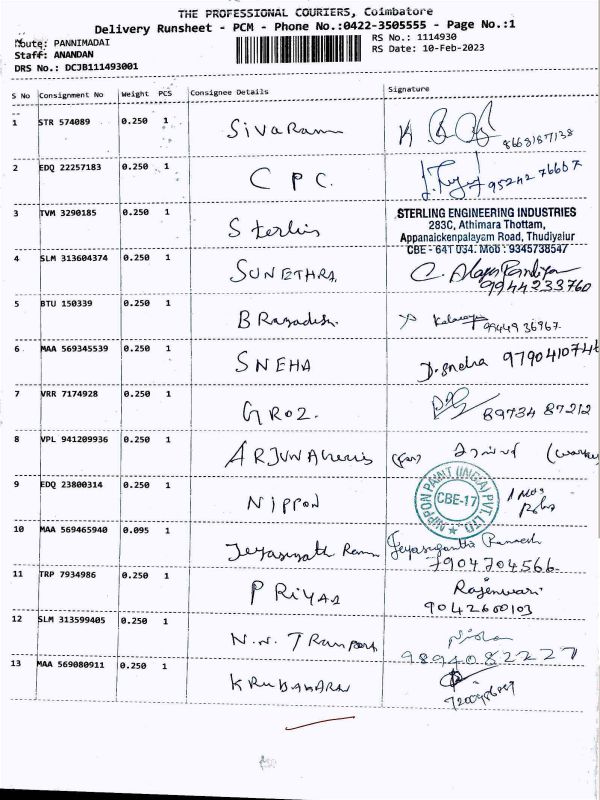 THE PROFESSIONAL COURIERS, Coimbatore
Delivery Runsheet - PCM - Phone No.:0422-3505555 - Page No.:1
Route: PANNIMADAI
RS No.: 1114930
Staff: ANANDAN
RS Date: 10-Feb-2023
DRS No.: DCJB111493001
S No Consignment No Weight PCS Consignee Details Signature
1 STR 574089 0.250 1 Sivaram 8668187138
2 EDQ 22257183 0.250 1 C P C. 95242 76667
3 TVM 3290185 0.250 1 Sterlin
STERLING ENGINEERING INDUSTRIES
283C, Athimara Thottam,
Appanaickenpalayam Road, Thudiyalur
CBE - 641 034. Mob : 9345738547
4 SLM 313604374 0.250 1 SUNETHRA C. Alagu Pandiyan
9944233760
5 BTU 150339 0.250 1 99449 36967.
6 MAA 569345539 0.250 1 SNEHA D. Sneha 9790410746
7 VRR 7174928 0.250 1 GROZ. 89734 87212
8 VPL 941209936 0.250 1 ARJUN
9 EDQ 23800314 0.250 1 NIPPON
NIPPON PAINT (INDIA) PVT. LTD. CBE-17
10 MAA 569465940 0.095 1
7904704566.
11 TRP 7934986 0.250 1 PRIYAA Rajeswari
9042600103
12 SLM 313599405 0.250 1 N.N. Transport
9894082227
13 MAA 569080911 0.250 1